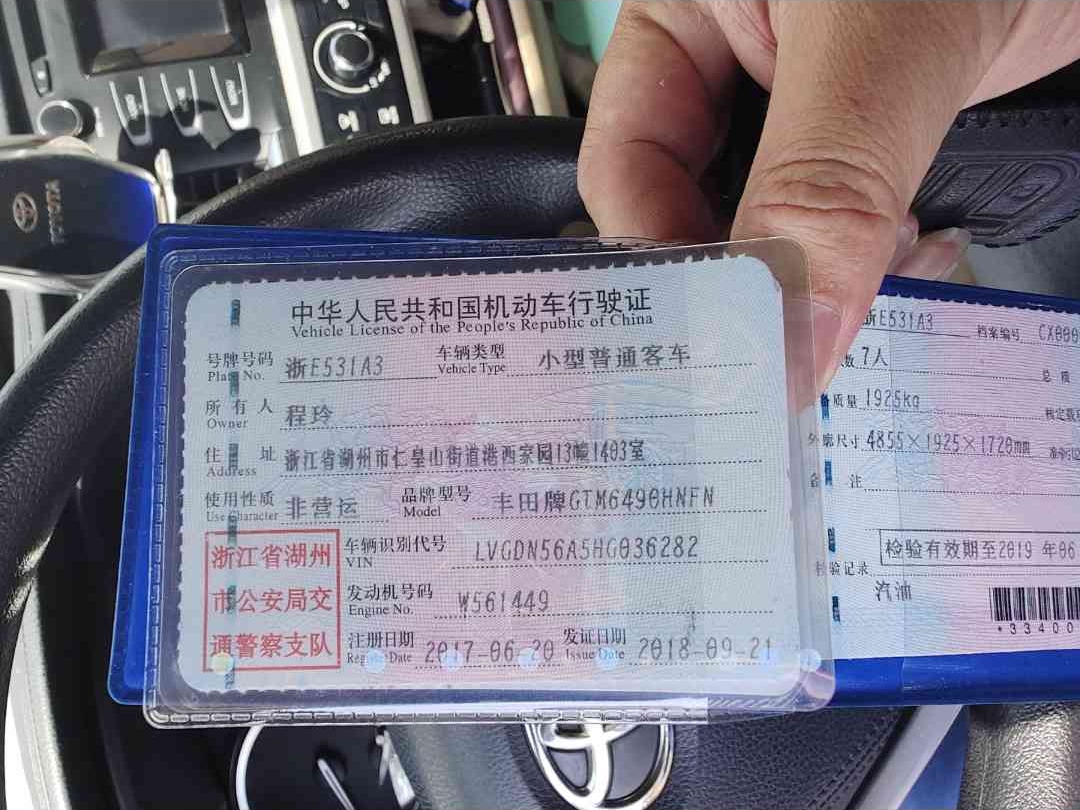 中华人民共和国机动车行驶证
Vehicle License of the People's Republic of China
号牌号码 浙E531A3 车辆类型 小型普通客车
Plate No. Vehicle Type
所有人 程玲
Owner
住址 浙江省湖州市仁皇山街道港西家园13幢1403室
Address
使用性质 非营运 品牌型号 丰田牌GTM6490HNFN
Use Character Model
浙江省湖州
市公安局交
通警察支队
车辆识别代号 LVGDN56A5HG036282
VIN
发动机号码 W561449
Engine No.
注册日期 2017-06-20 发证日期 2018-09-21
Register Date Issue Date
浙E531A3 档案编号
数 7人 总质
质量 1925kg 核定载
外廓尺寸 4855×1925×1720mm 准牵引
备注
检验有效期至2019 年06
检验记录
汽油
*33400